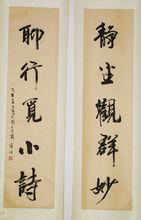 靜坐觀群妙
聊行覓小詩